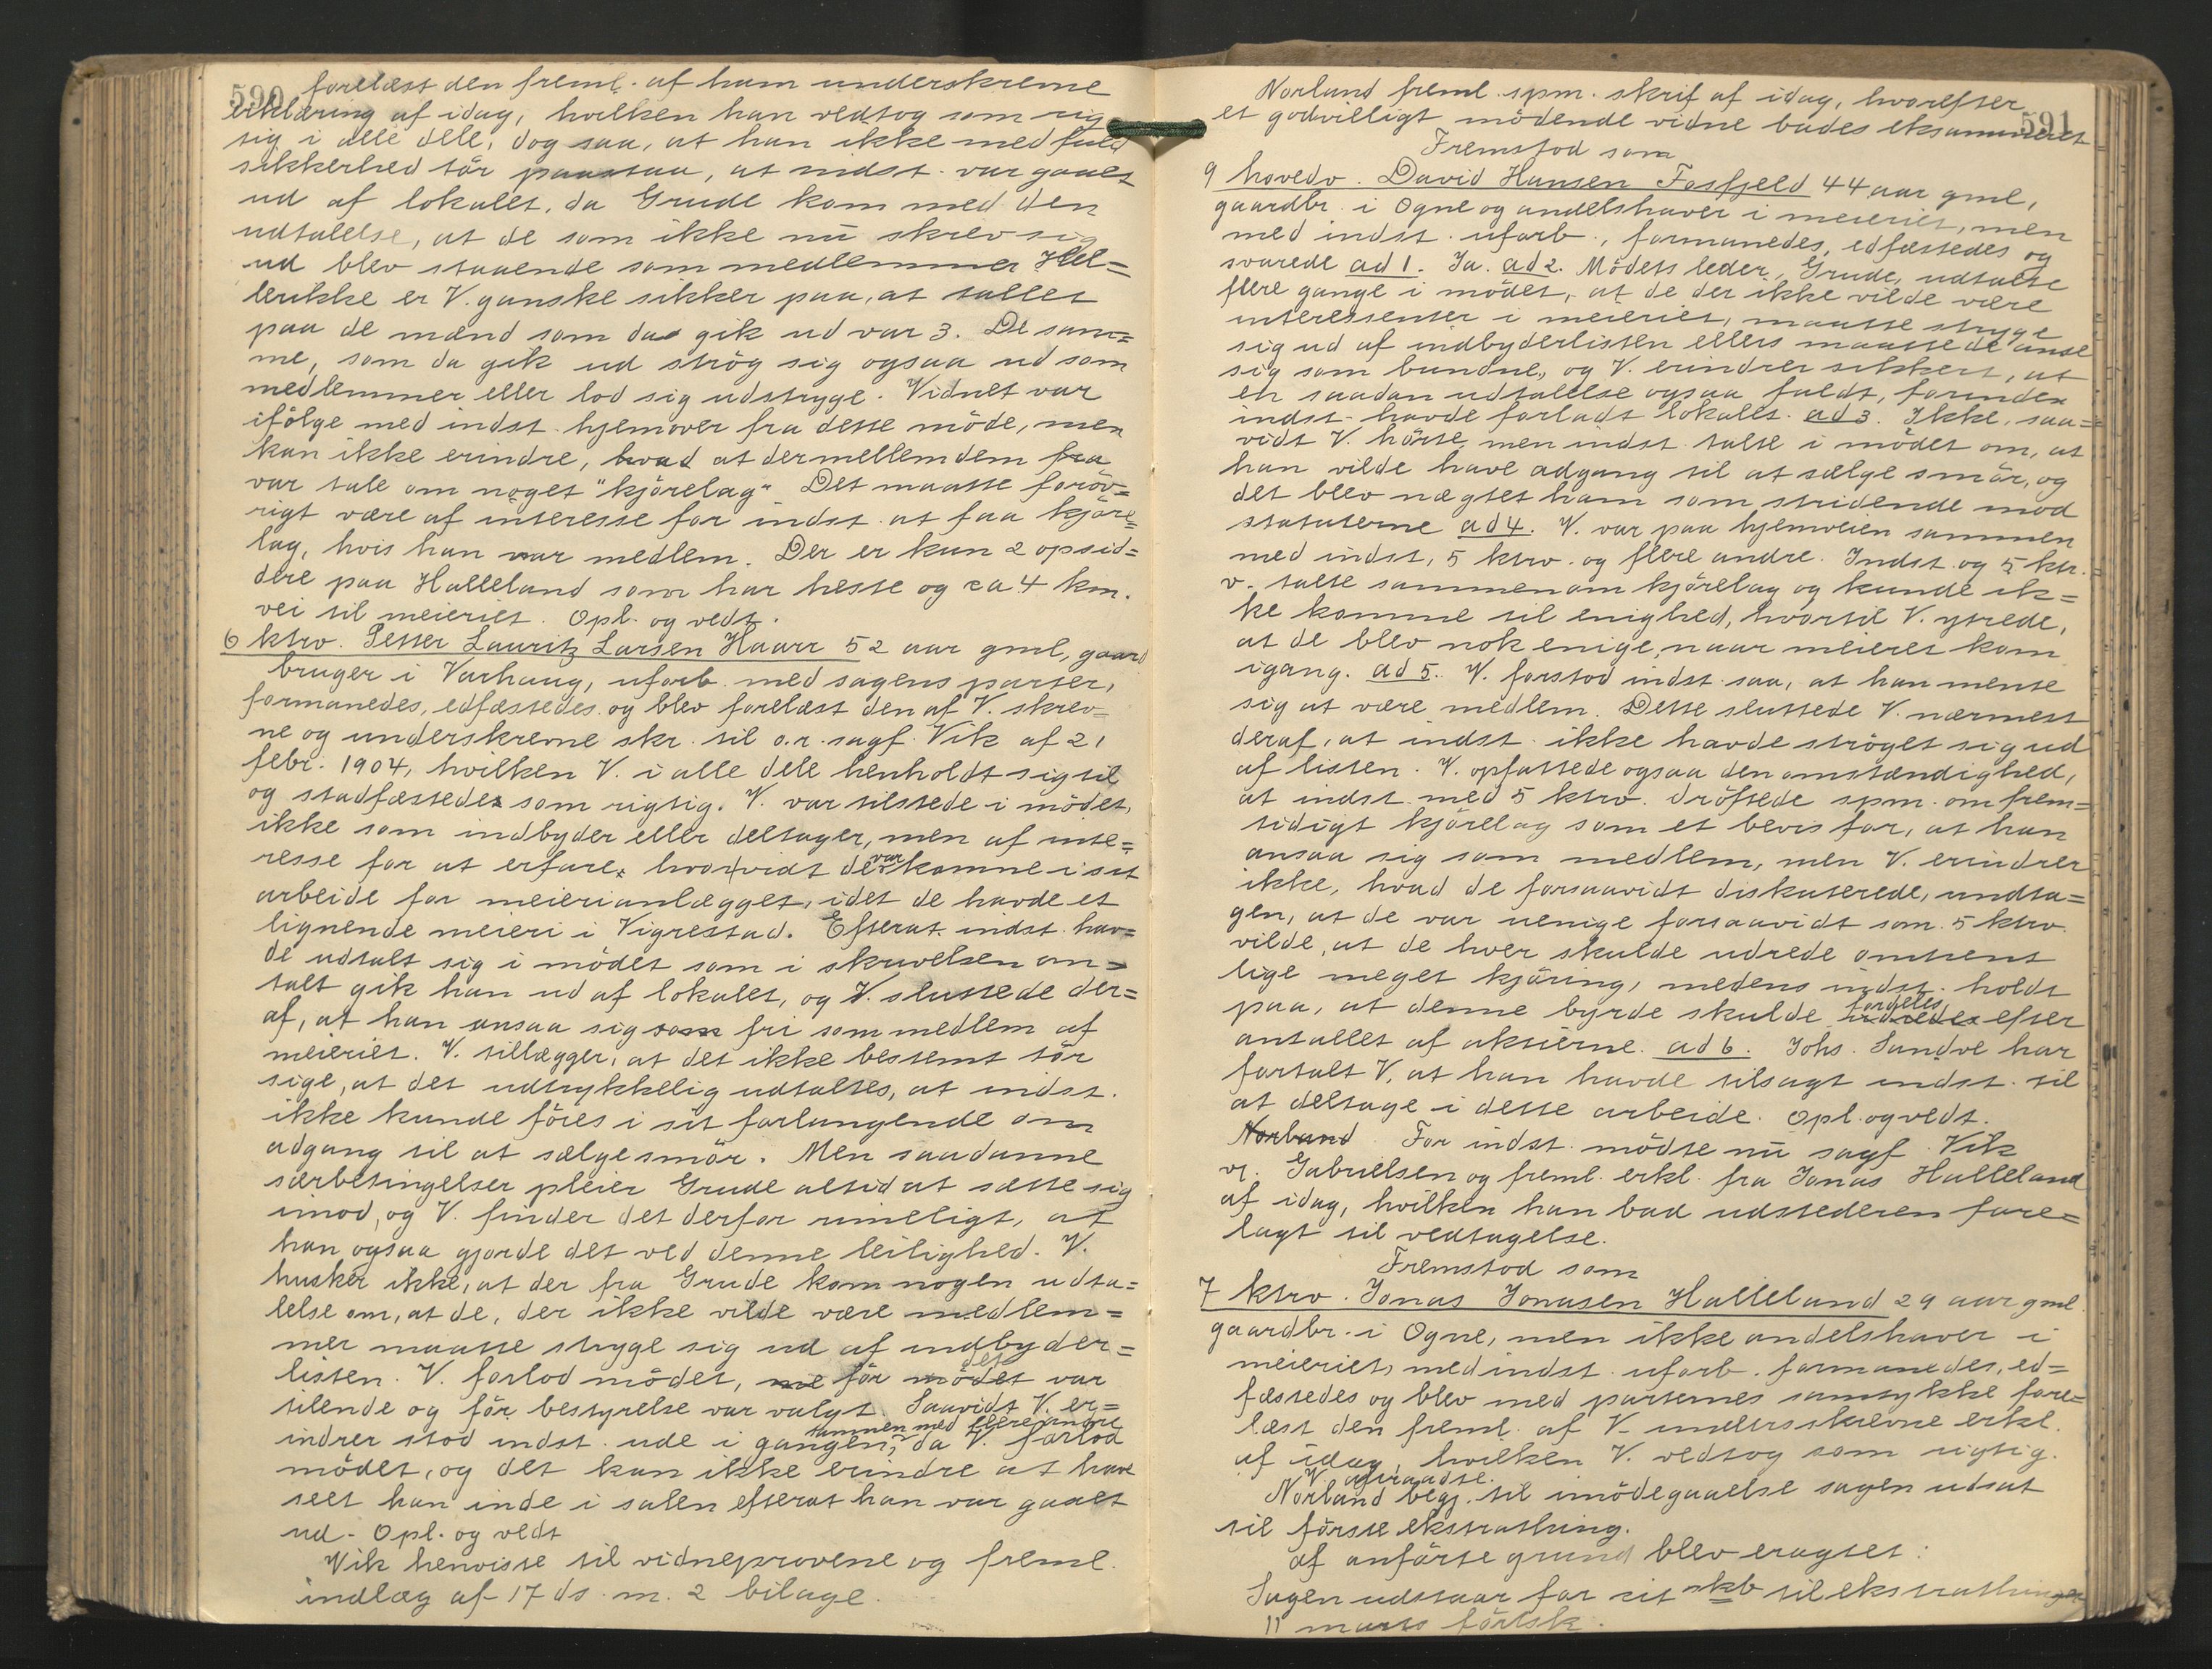 590
forelæst den freml. af ham underskrevne
erklæring af idag, hvilken han vedtog som rig
tig i alle dele, dog saa, at han ikke med fuld
sikkerhed tör paastaa, at indst. var gaaet
ud af lokalet, da Grude kom med den
udtalelse, at de som ikke nu skrev sig
ud blev staaende som medlemmer Hel=
lerikke er V. ganske sikker paa, at tallet
paa de mænd som da gik ud var 3. De sam=
me, som da gik ud strög sig ogsaa ud som
medlemmer eller lod sig udstryge. Vidnet var
ifölge med indst. hjemover fra dette möde, men
kan ikke erindre, hvad at der mellem dem fra
var tale om noget "kjörelag" Det maatte foröv=
rigt være af interesse for indst. at faa kjöre=
lag, hvis han var medlem. Der er kun 2 opsid=
dere paa Halleland som har heste og ca 4 km.
vei til meieriet. Opl. og vedt.
6 ktrv. Petter Lauritz Larsen Haarr 52 aar gml, gaard
bruger i Varhaug, ubesl. med sagens parter,
formanedes, edfæstedes og blev forelæst den af V. skrev=
ne og underskrevne skr. til o.r. sagf. Vik af 21
febr. 1904, hvilken V. i alle dele henholdt sig til
og stadfæstedes som rigtig. V. var tilstede i mödet,
ikke som indbyder eller deltager, men af inte=
resse for at erfare, hvorvidt de var komne i sit
arbeide for meierianlægget, idet de havde et
lignende meieri i Vigrestad. Efterat indst. hav=
de udtalt sig i mödet som i skrivelsen om=
talt gik han ud af lokalet, og V. sluttede der=
af, at han ansaa sig som fri som medlem af
meieriet. V. tillægger, at det ikke bestemt tör
sige, at det udtrykkelig udtaltes, at indst.
ikke kunde föies i sit forlangende om
adgang til at sælge smör. Men saadanne
særbetingelser pleier Grude altid at sætte sig
imod, og V. finder det derfor rimeligt, at
han ogsaa gjorde det ved denne leilighed. V.
husker ikke, at der fra Grude kom nogen udta=
lelse om, at de, der ikke vilde være medlem=
mer maatte stryge sig ud af indbyder=
listen. V. forlod mödet, me för mödet det var
tilende og för bestyrelse var valgt. Saavidt V. er=
indrer stod indst. ude i gangen, sammen med flere andre da V. forlod
mödet, og det kan ikke erindre at have
seet han inde i salen efterat han var gaaet
ud. Opl. og vedt
Vik henviste til vidneprovene og freml.
indlæg af 17 ds. m. 2 bilage.
591
Norland freml. spm. skrif af idag, hvorefter
et godvilligt mödende vidne bades eksamineret
Fremstod som
9 hovedv. David Hansen Fosfjeld 44 aar gml,
gaardbr. i Ogne og andelshaver i meieriet, men
med indst. ubesl., formanedes, edfæstedes og
svarede ad 1. Ja. ad 2. Mödets leder, Grude, udtalte
flere gange i mödet, at de der ikke vilde være
interessenter i meieriet, maatte stryge
sig ud af indbyderlisten ellers maatte de anse
sig som bundne, og V. erindrer sikkert, at
en saadan udtalelse ogsaa faldt, forinden
indst. havde forladt lokalet. ad 3. Ikke, saa=
vidt V. hörte, men indst. talte i mödet om, at
han vilde have adgang til at sælge smör, og
det blev nægtet ham som stridende mod
statuterne ad 4. V. var paa hjemveien sammen
med indst, 5 ktrv. og flere andre. Indst. og 5 ktr.=
v. talte sammen om kjörelag og kunde ik=
ke komme til enighed, hvortil V. ytrede,
at de blev nok enige, naar meieriet kom
igang. ad 5. V. forstod indst. saa, at han mente
sig at være medlem. Dette sluttede V. nærmest
deraf, at indst. ikke havde ströget sig ud
af listen. V. opfattede ogsaa den omstændighed,
at indst. med 5 ktrv. dröftede spm. om frem=
tidigt kjörelag som et bevis for, at han
ansaa sig som medlem, men V. erindrer
ikke, hvad de forsaavidt diskuterede, undta=
gen, at de var uenige forsaavidt som 5 ktrv.
vilde, at de hver skulde udrede omtrent
lige meget kjöring, medens indst. holdt
paa, at denne byrde skulde udredes fordeles efter
antallet af aktierne. ad 6. Johs. Sandve har
fortalt V, at han havde tilsagt indst. til
at deltage i dette arbeide. Opl. og vedt.
Norland For indst. mödte nu sagf. Vik
v. Gabrielsen og freml. erkl. fra Jonas Halleland
af idag, hvilken han bad udstederen fore=
lagt til vedtagelse.
Fremstod som
7 ktrv. Jonas Jonasen Halleland 29 aar gml.
gaardbr. i Ogne, men ikke andelshaver i
meieriet, med indst. ubesl. formanedes, ed=
fæstedes og blev med parternes samtykke fore=
læst den freml. af V. underskrevne erkl.
af idag, hvilken V. vedtog som rigtig.
V. afraadte.
Norland begj. til imödegaaelse sagen udsat
til förste ekstrathing.
Af anförte grund blev eragtet:
Sagen udstaar for sit skb til ekstrathinget
11 marts förstk.